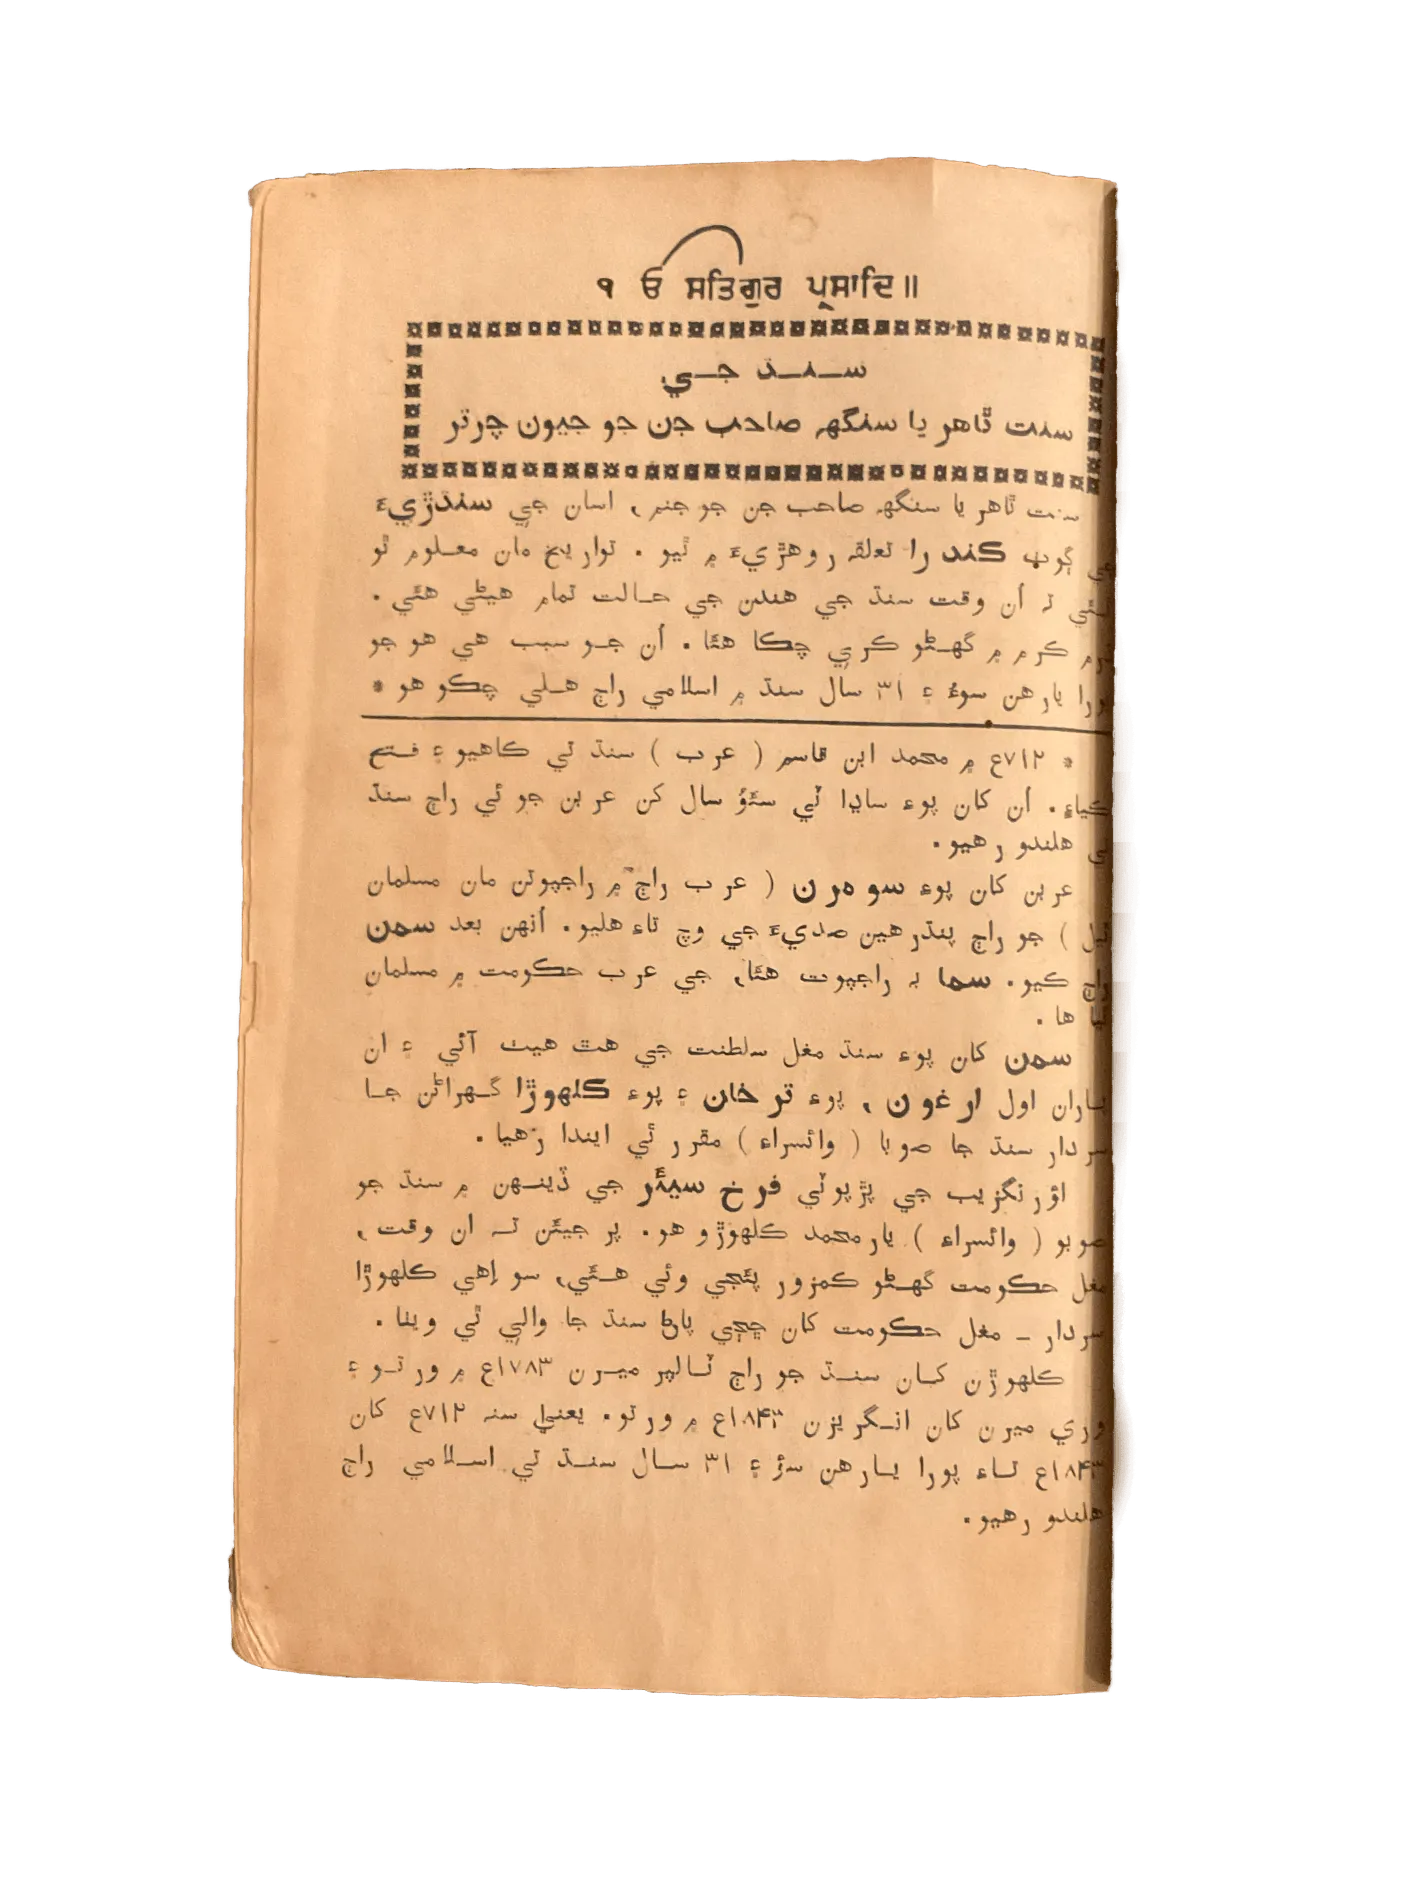 ੧ ਓ ਸਤਿਗੁਰ ਪ੍ਰਸਾਦਿ॥
سنڌ جي
سنت ٿاهر يا سنگهہ صاحب جن جو جيون چرتر
سنت ٿاهر يا سنگهہ صاحب جن جو جنم، اسان جي سنڌڙيءَ
ڳوٺ ڪنڊ را تعلقہ روهڙيءَ ۾ ٿيو. تواريخ مان معلوم ٿو
تہ اُن وقت سنڌ جي هندن جي حالت تمام هيڻي هئي.
ڪرم ۾ گهڻو ڪري چڪا هئا. اُن جو سبب هي هو جو
يارهن سوءُ ۽ ۳۱ سال سنڌ ۾ اسلامي راڄ هلي چڪو هو *
* ۷۱۲ع ۾ محمد ابن قاسم ( عرب ) سنڌ تي ڪاهيو ۽ فتح
ڪياءِ. اُن کان پوءِ ساڍا ٽي سئوُ سال کن عربن جو ئي راڄ سنڌ
هلندو رهيو.
عربن کان پوءِ سومرن ( عرب راڄ ۾ راجپوتن مان مسلمان
) جو راڄ پندرهين صديءَ جي وچ تاءِ هليو. اُنهن بعد سمن
راڄ ڪيو. سما بہ راجپوت هئا، جي عرب حڪومت ۾ مسلمان
ها.
سمن کان پوءِ سنڌ مغل سلطنت جي هٿ هيٺ آئي ۽ ان
پاران اول ارغون، پوءِ ترخان ۽ پوءِ ڪلهوڙا گهراڻن جا
سردار سنڌ جا صوبا ( وائسراءِ ) مقرر ٿي ايندا رهيا.
اؤرنگزيب جي پڙپوٽي فرخ سيئر جي ڏينهن ۾ سنڌ جو
صوبو ( وائسراءِ ) يارمحمد ڪلهوڙو هو. پر جيئن تہ ان وقت،
مغل حڪومت گهڻو ڪمزور پئجي وئي هئي، سو اِهي ڪلهوڙا
سردار - مغل حڪومت کان ڇڄي پاڻ سنڌ جا والي ٿي ويٺا.
ڪلهوڙن کان سنڌ جو راڄ ٽالپر ميرن ۱۷۸۳ع ۾ ورتو ۽
وري ميرن کان انگريزن ۱۸۴۳ع ۾ ورتو. يعني سنہ ۷۱۲ع کان
۱۸۴۳ع تاءِ پورا يارهن سؤ ۽ ۳۱ سال سنڌ تي اسلامي راڄ
هلندو رهيو.